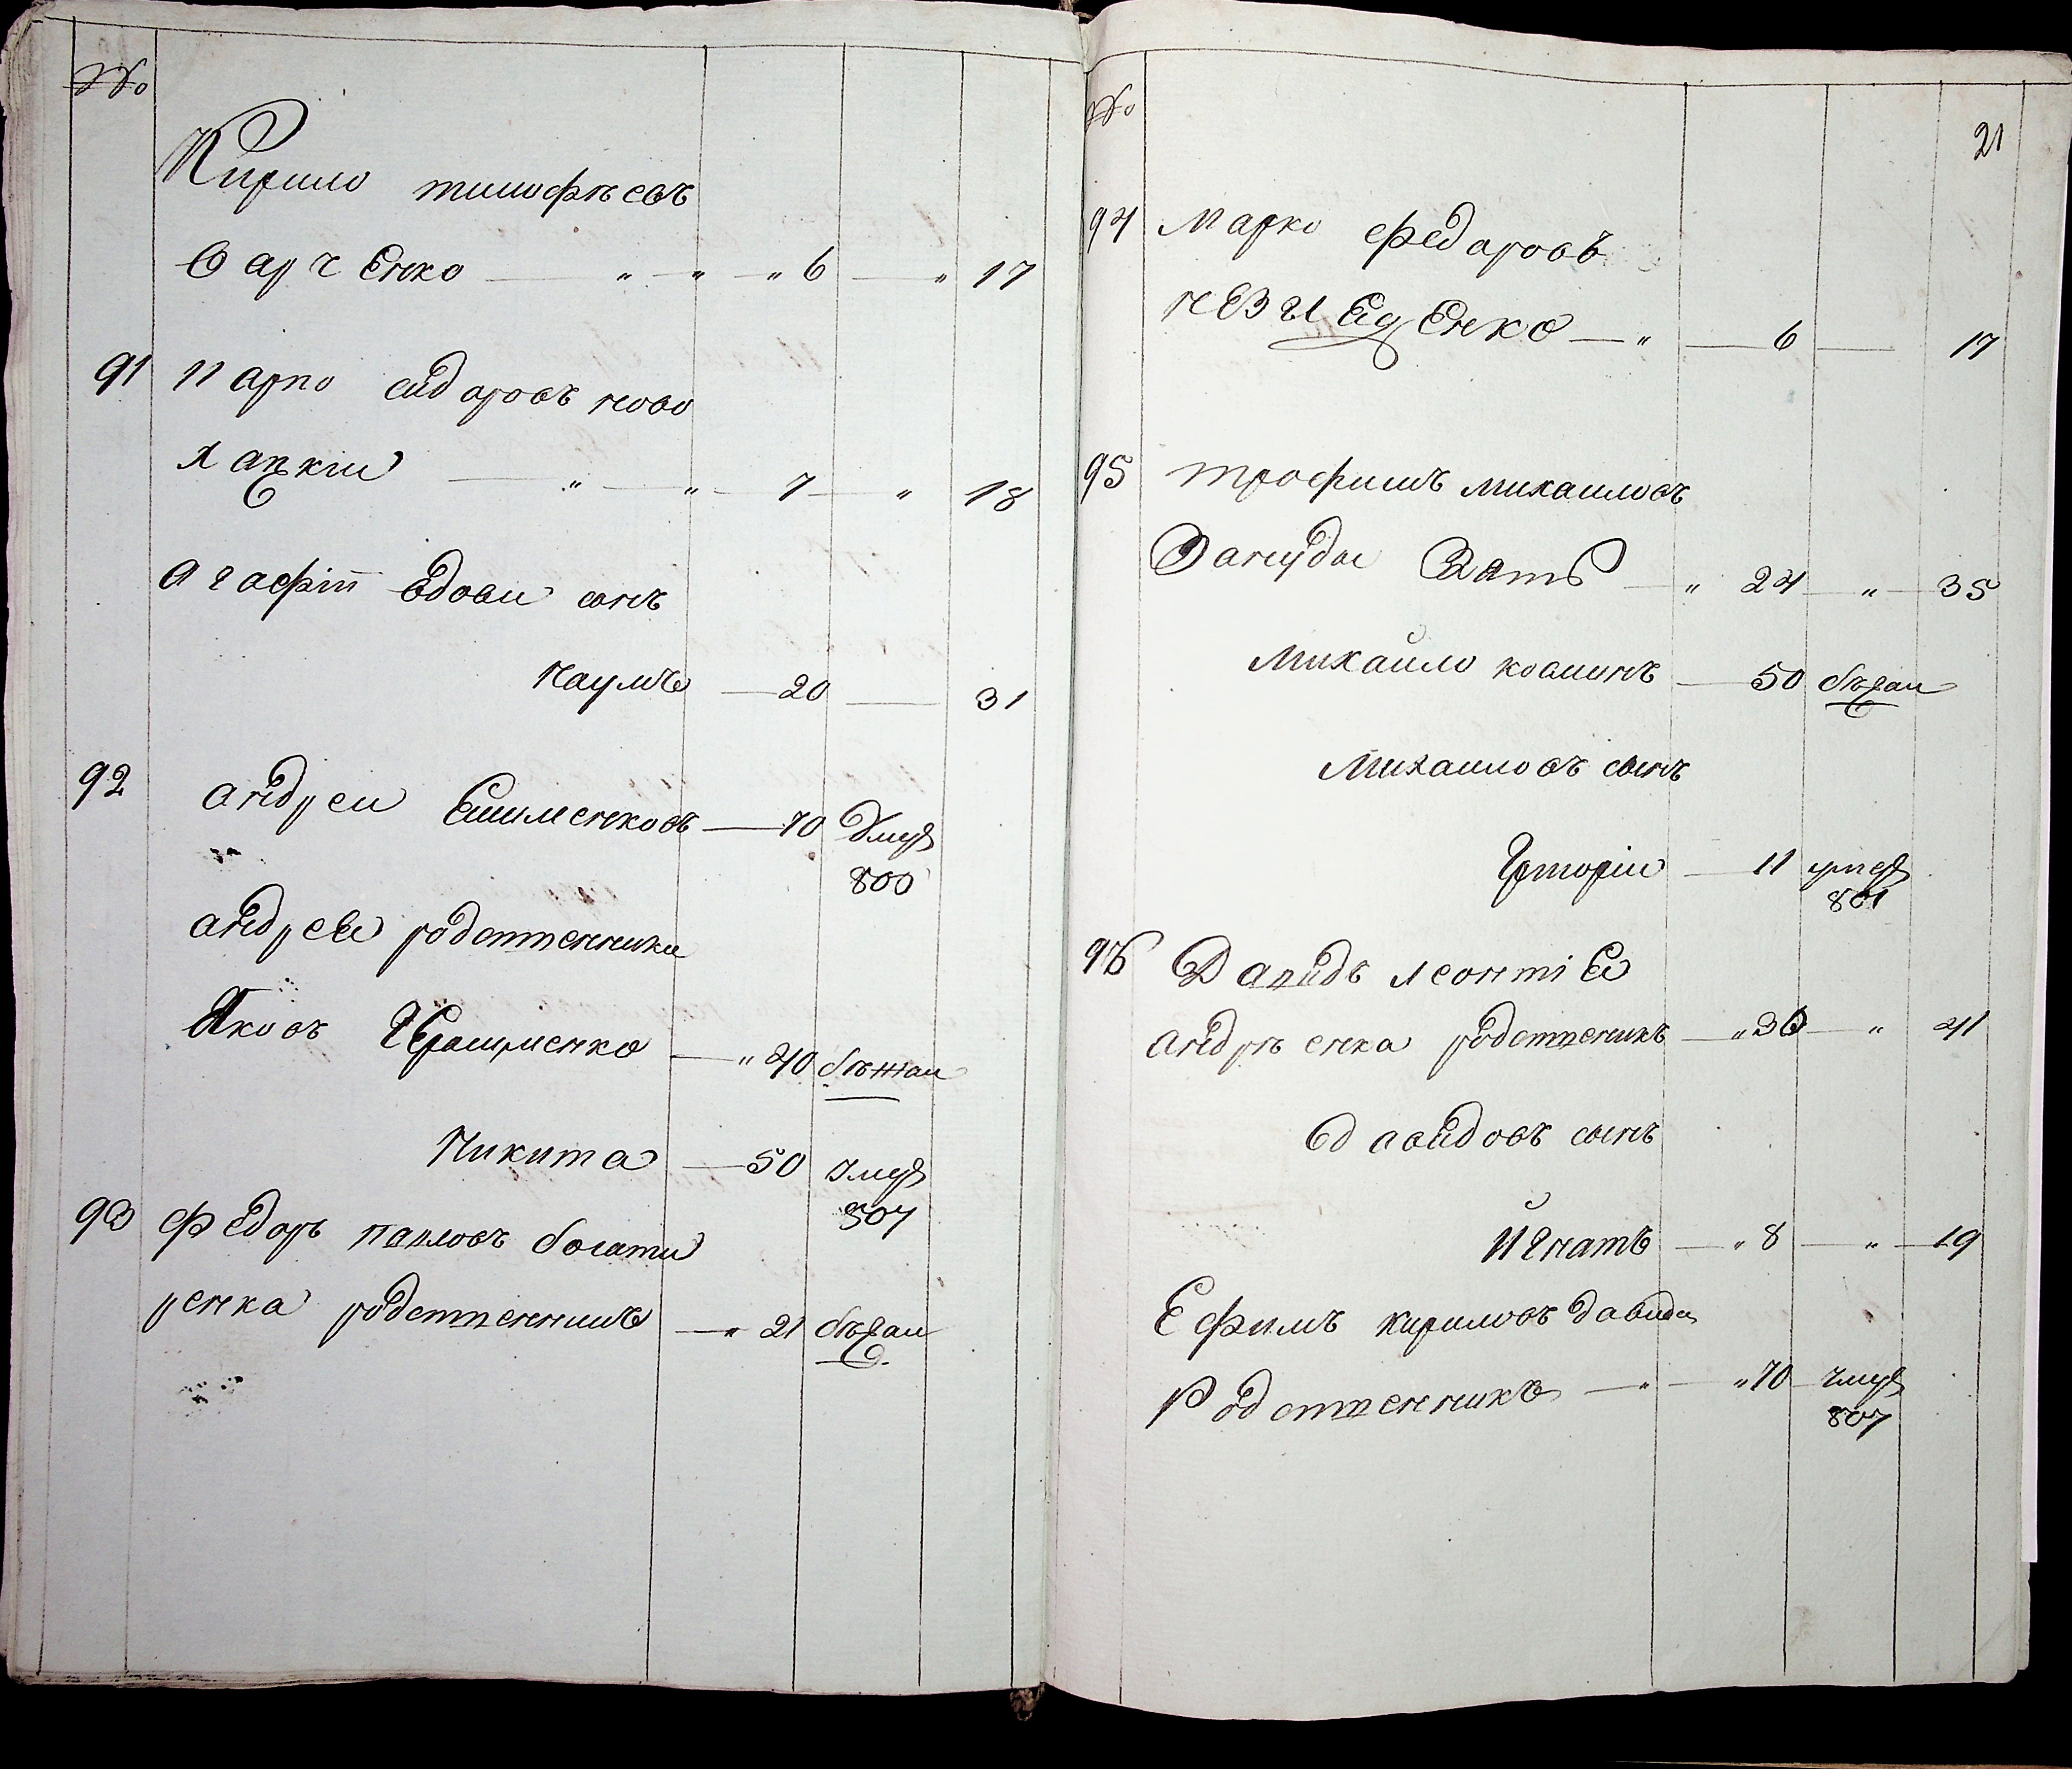 №
Кирило тимофѣевъ
варченко — " — " — " 6 — " 17
91 Карпо сидоровъ ново
хацкии — " — " — 7 — " 18
Агафіи вдови сынъ
Наумъ — 20 — 31
92 андреи Ефименковъ — 70 умре
800
андреев родственники
Яковъ Герасименко — " 40 бѣжал
Никита — 50 умре
807
93 федоръ павловъ богати
ренка родственникъ — " 21 бѣгал
№
21
94 Марко федоровъ
— " — 6 — 17
95 трофимъ михаиловъ
зять — " 24 — " — 35
Михайло козминъ — 50 бѣгал
Михаиловъ сынъ
Григоріи — 11 умре
801
96 Давидъ леонтіев
андрѣенка родственикъ — " 30 — " 41
давидовъ сынъ
Игнатъ — " 8 — " — 19
Ефимъ кириловъ давида
Родственникъ — " — " 70 — умре
807